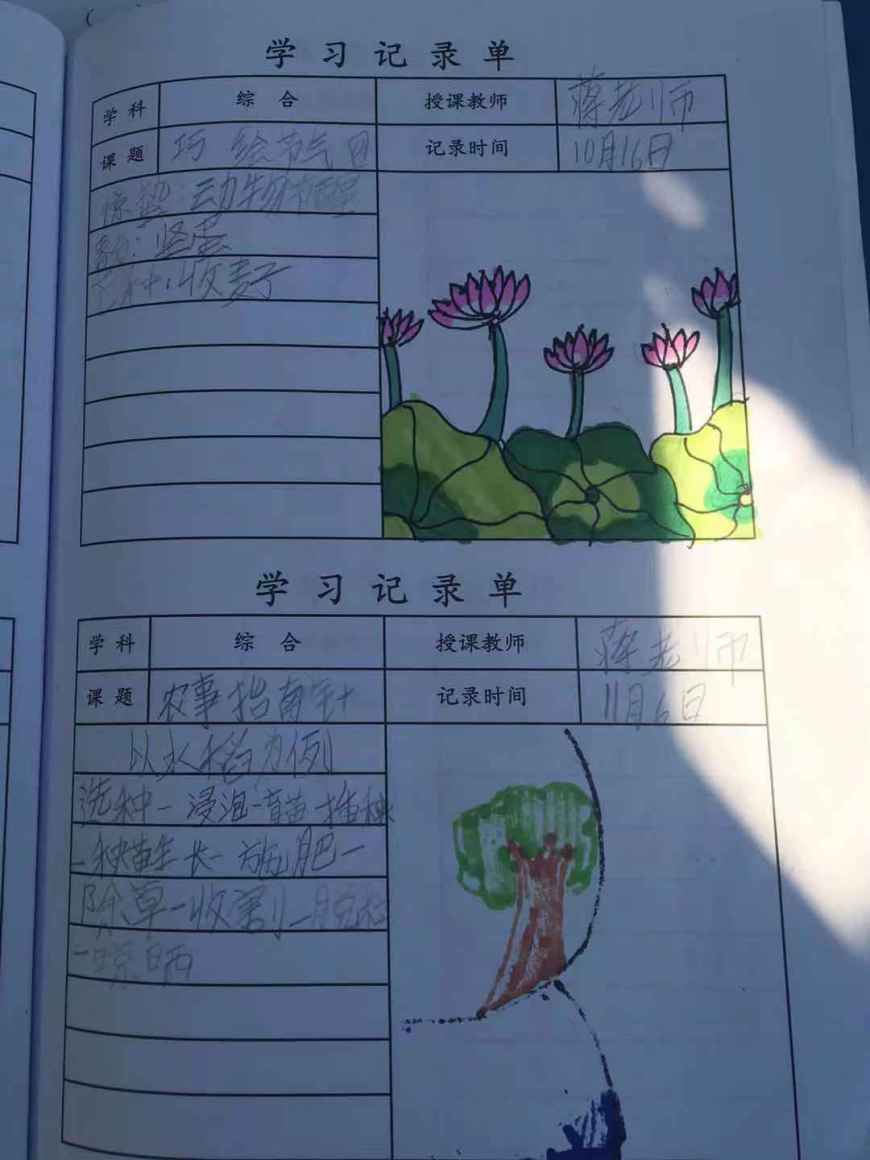 学习记录单
学科 综合 授课教师 蒋老师
课题 巧绘节气 记录时间 10月16日
惊蛰:动物醒
竖蛋
芒种:收麦子
学习记录单
学科 综合 授课教师 蒋老师
课题 农事指南针 记录时间 11月6日
以水稻为例
选种-浸泡-育苗-插秧
-秧苗生长-施肥-
除草-收割-脱粒
-晾晒